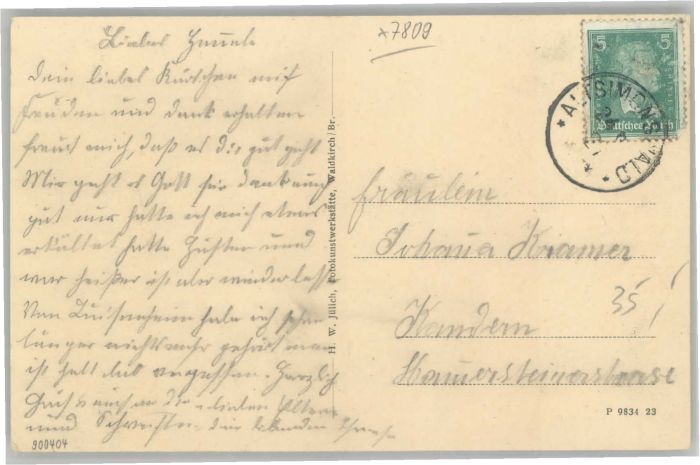 x7809
Liebes Hannele
Dein liebes Kärtchen mit
Freuden und dank erhalten
freut mich, daß es dir gut geht
Mir geht es Gott sei dank auch
gut nur hatte ich mich etwas
erkältet hatte Husten und
war heißer ist aber wieder besser
Von habe ich schon
länger nichts mehr gehört man
ist halt bald vergessen. Herzlich
Gruß auch an die lieben Eltern
und Schwester dein
900404
H. W. Jülich, Fotokunstwerkstätte, Waldkirch/Br.
5 5
Deutsches Reich
ALTSIMONSWALD
Fräulein
Johana Kramer
Kandern
Hamersteinerstrase
35
P 9834 23